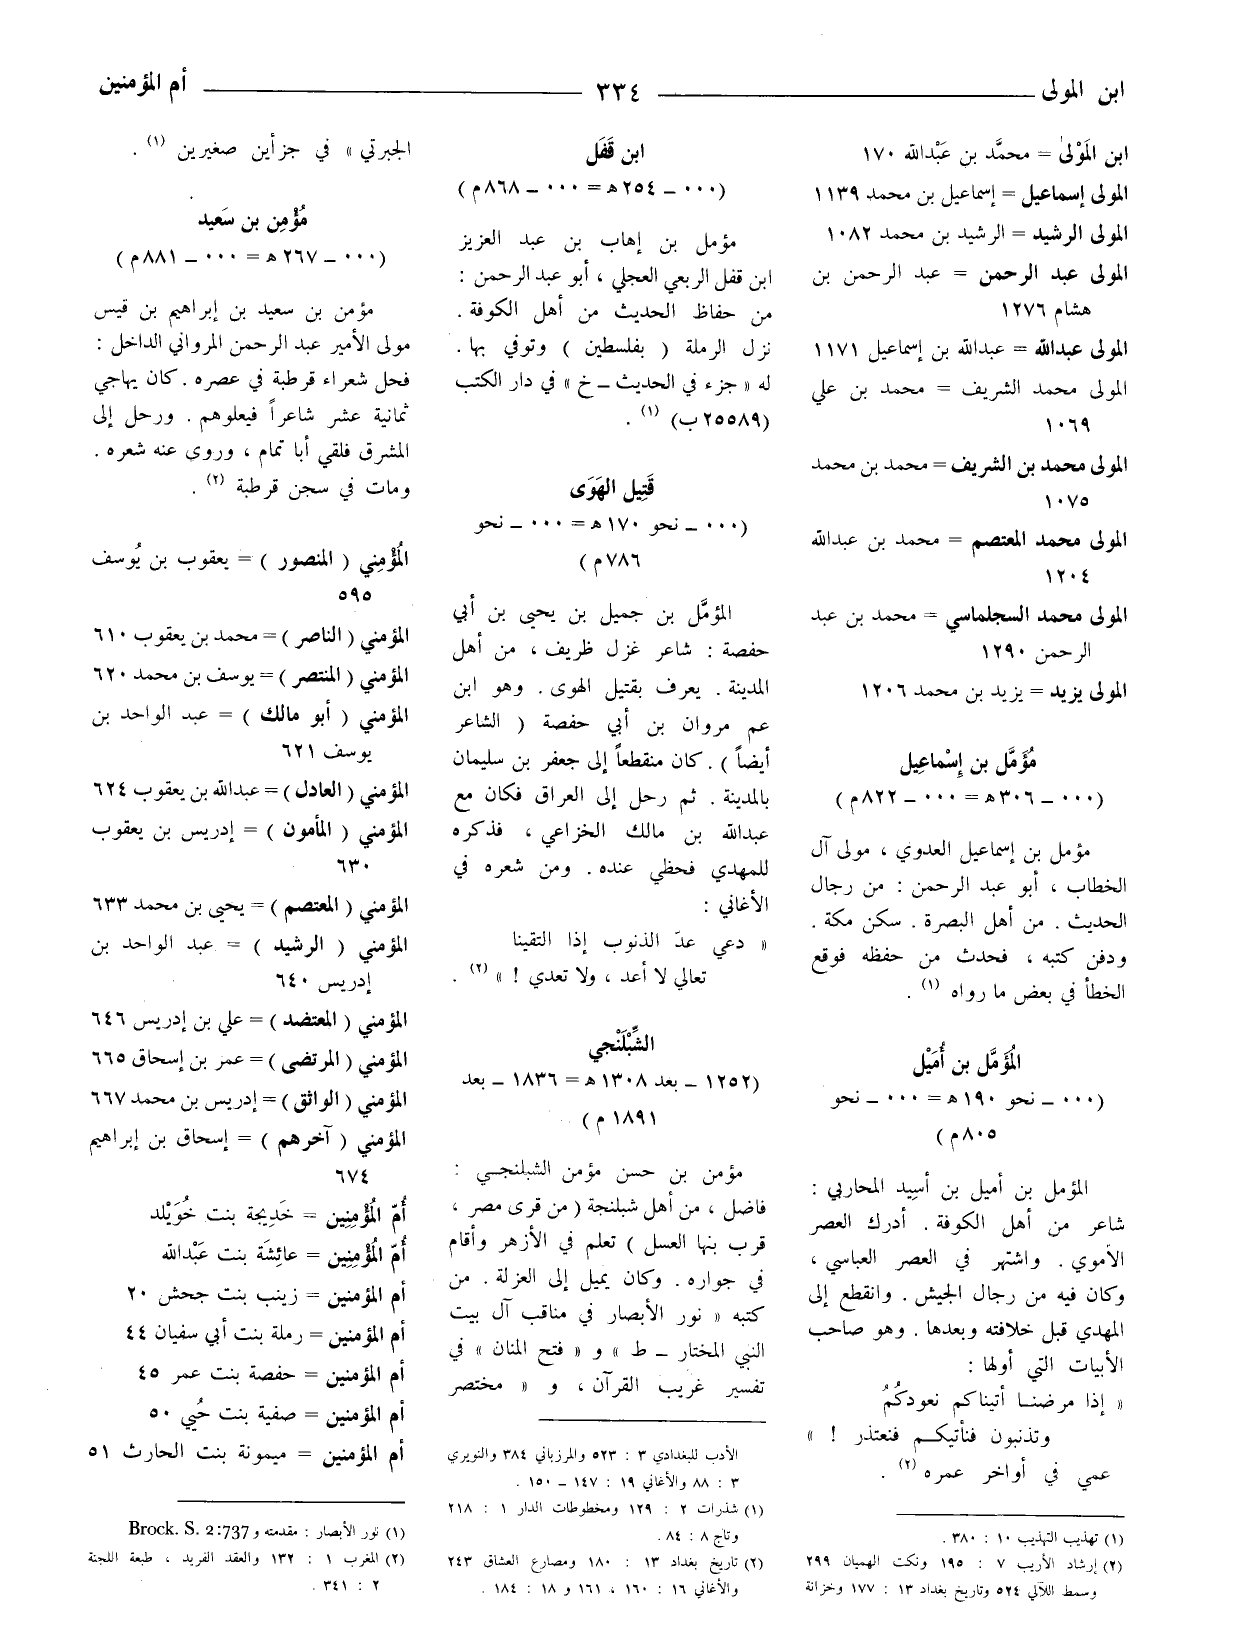 ابن المولى
٣٣٤
أم المؤمنين
ابن المَوْلىٰ = محمَّد بن عَبْدالله ١٧٠
المولى إسماعيل = إسماعيل بن محمد ١١٣٩
المولى الرشيد = الرشيد بن محمد ١٠٨٢
المولى عبد الرحمن = عبد الرحمن بن
هشام ١٢٧٦
المولى عبدالله = عبدالله بن إسماعيل ١١٧١
المولى محمد الشريف = محمد بن علي
١٠٦٩
المولى محمد بن الشريف = محمد بن محمد
١٠٧٥
المولى محمد المعتصم = محمد بن عبدالله
١٢٠٤
المولى محمد السجلماسي = محمد بن عبد
الرحمن ١٢٩٠
المولى يزيد = يزيد بن محمد ١٢٠٦
مُؤَمَّل بن إِسْماعِيل
(٠٠٠ ـ ٣٠٦ هـ = ٠٠٠ ـ ٨٢٢ م)
مؤمل بن إسماعيل العدوي ، مولى آل
الخطاب ، أبو عبد الرحمن : من رجال
الحديث . من أهل البصرة . سكن مكة .
ودفن كتبه ، فحدث من حفظه فوقع
الخطأ في بعض ما رواه (١) .
المُؤَمَّل بن أُمَيْل
(٠٠٠ ـ نحو ١٩٠ هـ = ٠٠٠ ـ نحو
٨٠٥ م)
المؤمل بن أميل بن أسِيد المحاربي :
شاعر من أهل الكوفة . أدرك العصر
الأموي . واشتهر في العصر العباسي ،
وكان فيه من رجال الجيش . وانقطع إلى
المهدي قبل خلافته وبعدها . وهو صاحب
الأبيات التي أولها :
« إذا مرضنا أتيناكم نعودكُمُ
وتذنبون فنأتيكم فنعتذر ! »
عمي في أواخر عمره (٢) .
(١) تهذيب التهذيب ١٠ : ٣٨٠ .
(٢) إرشاد الأريب ٧ : ١٩٥ ونكت الهميان ٢٩٩
وسمط اللآلي ٥٢٤ وتاريخ بغداد ١٣ : ١٧٧ وخزانة
ابن قَفَل
(٠٠٠ ـ ٢٥٤ هـ = ٠٠٠ ـ ٨٦٨ م)
مؤمل بن إهاب بن عبد العزيز
ابن قفل الربعي العجلي ، أبو عبد الرحمن :
من حفاظ الحديث من أهل الكوفة .
نزل الرملة ( بفلسطين ) وتوفي بها .
له « جزء في الحديث ـ خ » في دار الكتب
(٢٥٥٨٩ ب) (١) .
قَتِيل الهَوَى
(٠٠٠ ـ نحو ١٧٠ هـ = ٠٠٠ ـ نحو
٧٨٦ م )
المؤمَّل بن جميل بن يحيى بن أبي
حفصة : شاعر غزل ظريف ، من أهل
المدينة . يعرف بقتيل الهوى . وهو ابن
عم مروان بن أبي حفصة ( الشاعر
أيضاً ) . كان منقطعاً إلى جعفر بن سليمان
بالمدينة . ثم رحل إلى العراق فكان مع
عبدالله بن مالك الخزاعي ، فذكره
للمهدي فحظي عنده . ومن شعره في
الأغاني :
« دعي عدّ الذنوب إذا التقينا
تعالي لا أعد ، ولا تعدي ! » (٢) .
الشِّبْلَنْجي
(١٢٥٢ ـ بعد ١٣٠٨ هـ = ١٨٣٦ ـ بعد
١٨٩١ م )
مؤمن بن حسن مؤمن الشبلنجي :
فاضل ، من أهل شبلنجة ( من قرى مصر ،
قرب بنها العسل ) تعلم في الأزهر وأقام
في جواره . وكان يميل إلى العزلة . من
كتبه « نور الأبصار في مناقب آل بيت
النبي المختار ـ ط » و « فتح المنان » في
تفسير غريب القرآن ، و « مختصر
الأدب للبغدادي ٣ : ٥٢٣ والمرزباني ٣٨٤ والنويري
٣ : ٨٨ والأغاني ١٩ : ١٤٧ ـ ١٥٠ .
(١) شذرات ٢ : ١٢٩ ومخطوطات الدار ١ : ٢١٨
وتاج ٨ : ٨٤ .
(٢) تاريخ بغداد ١٣ : ١٨٠ ومصارع العشاق ٢٤٣
والأغاني ١٦ : ١٦٠ ، ١٦١ و ١٨ : ١٨٤ .
الجبرتي » في جزأين صغيرين (١) .
مُؤْمِن بن سَعيد
(٠٠٠ ـ ٢٦٧ هـ = ٠٠٠ ـ ٨٨١ م)
مؤمن بن سعيد بن إبراهيم بن قيس
مولى الأمير عبد الرحمن المرواني الداخل :
فحل شعراء قرطبة في عصره . كان يهاجي
ثمانية عشر شاعراً فيعلوهم . ورحل إلى
المشرق فلقي أبا تمام ، وروى عنه شعره .
ومات في سجن قرطبة (٢) .
المُؤْمِني ( المنصور ) = يعقوب بن يُوسف
٥٩٥
المؤمني ( الناصر ) = محمد بن يعقوب ٦١٠
المؤمني ( المنتصر ) = يوسف بن محمد ٦٢٠
المؤمني ( أبو مالك ) = عبد الواحد بن
يوسف ٦٢١
المؤمني ( العادل ) = عبدالله بن يعقوب ٦٢٤
المؤمني ( المأمون ) = إدريس بن يعقوب
٦٣٠
المؤمني ( المعتصم ) = يحيى بن محمد ٦٣٣
المؤمني ( الرشيد ) = عبد الواحد بن
إدريس ٦٤٠
المؤمني ( المعتضد ) = علي بن إدريس ٦٤٦
المؤمني ( المرتضى ) = عمر بن إسحاق ٦٦٥
المؤمني ( الواثق ) = إدريس بن محمد ٦٦٧
المؤمني ( آخرهم ) = إسحاق بن إبراهيم
٦٧٤
أُمّ المُؤْمِنِين = خَدِيجة بنت خُوَيْلد
أُمّ المُؤْمِنِين = عائِشَة بنت عَبْدالله
أم المؤمنين = زينب بنت جحش ٢٠
أم المؤمنين = رملة بنت أبي سفيان ٤٤
أم المؤمنين = حفصة بنت عمر ٤٥
أم المؤمنين = صفية بنت حُيي ٥٠
أم المؤمنين = ميمونة بنت الحارث ٥١
(١) نور الأبصار : مقدمته و Brock. S. 2:737
(٢) المغرب ١ : ١٣٢ والعقد الفريد ، طبعة اللجنة
٢ : ٣٤١ .